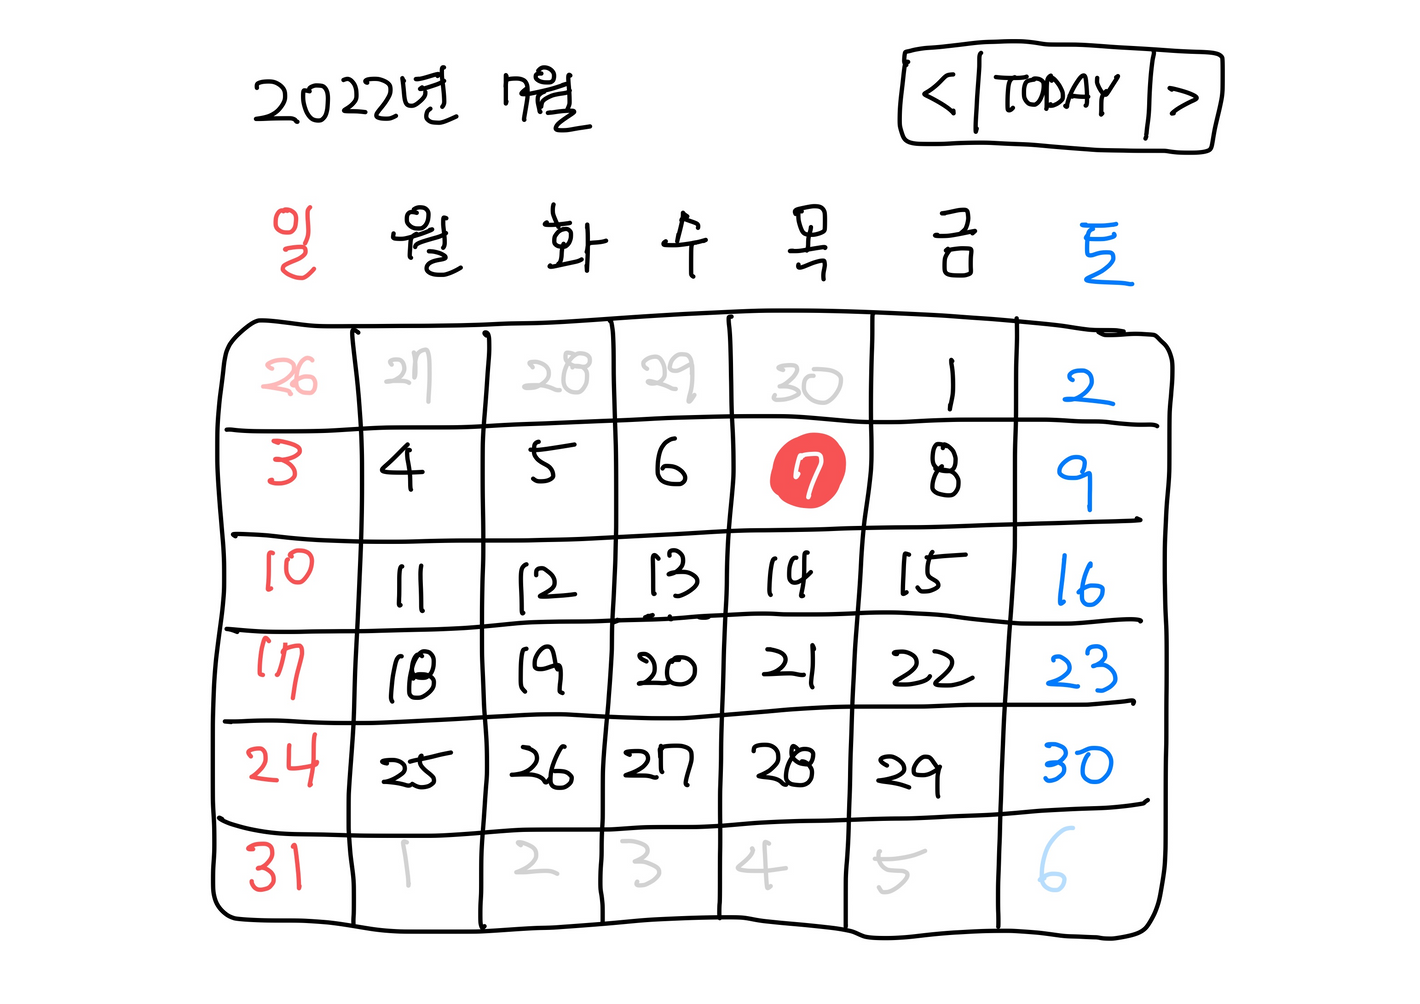 2022년 7월 < TODAY >
일 월 화 수 목 금 토
26 27 28 29 30 1 2
3 4 5 6 7 8 9
10 11 12 13 14 15 16
17 18 19 20 21 22 23
24 25 26 27 28 29 30
31 1 2 3 4 5 6